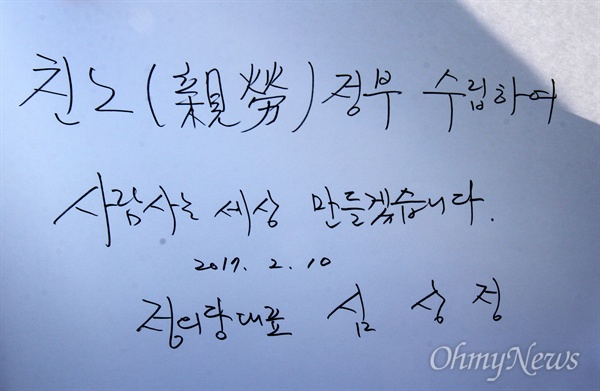 친노(親勞)정부 수립하여
사람사는 세상 만들겠습니다.
2017. 2. 10
정의당대표 심상정
OhmyNews